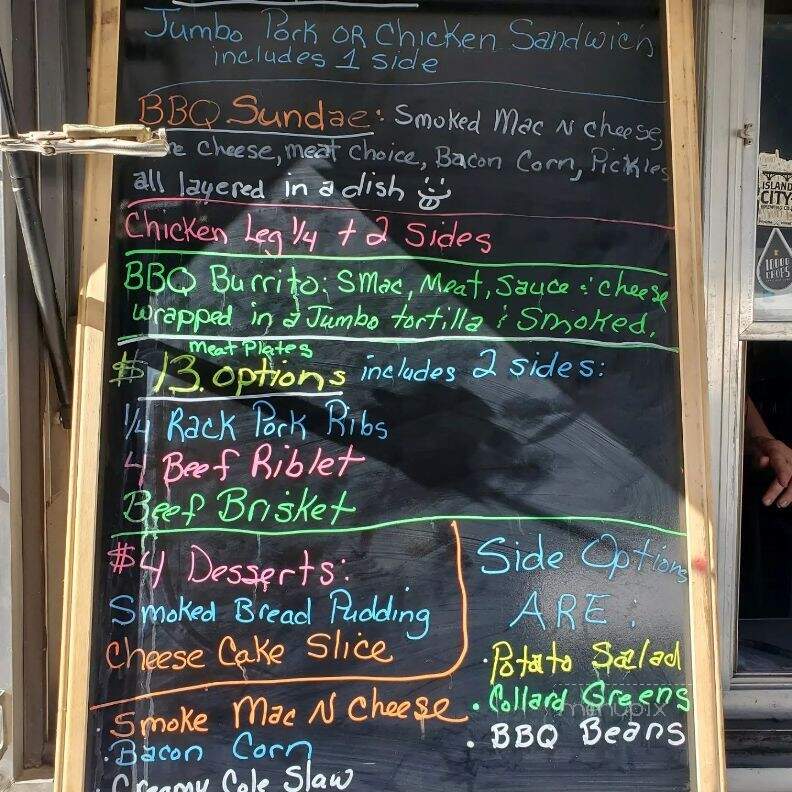 Jumbo Pork OR Chicken Sandwich
includes 1 side
BBQ Sundae: Smoked Mac N cheese,
cheese, meat choice, Bacon Corn, Pickles
all layered in a dish
Chicken Leg 1/4 + 2 Sides
BBQ Burrito: SMac, Meat, Sauce & cheese
wrapped in a Jumbo tortilla & Smoked.
Meat Plates
$13. options includes 2 sides:
1/4 Rack Pork Ribs
4 Beef Riblet
Beef Brisket
$4 Desserts:
Smoked Bread Pudding
Cheese Cake Slice
Side Options
ARE:
· Potato Salad
· Collard Greens
· BBQ Beans
· Smoke Mac N Cheese
· Bacon Corn
· Creamy Cole Slaw
ISLAND
CITY
BREWING CO.
10000
DROPS
menupix